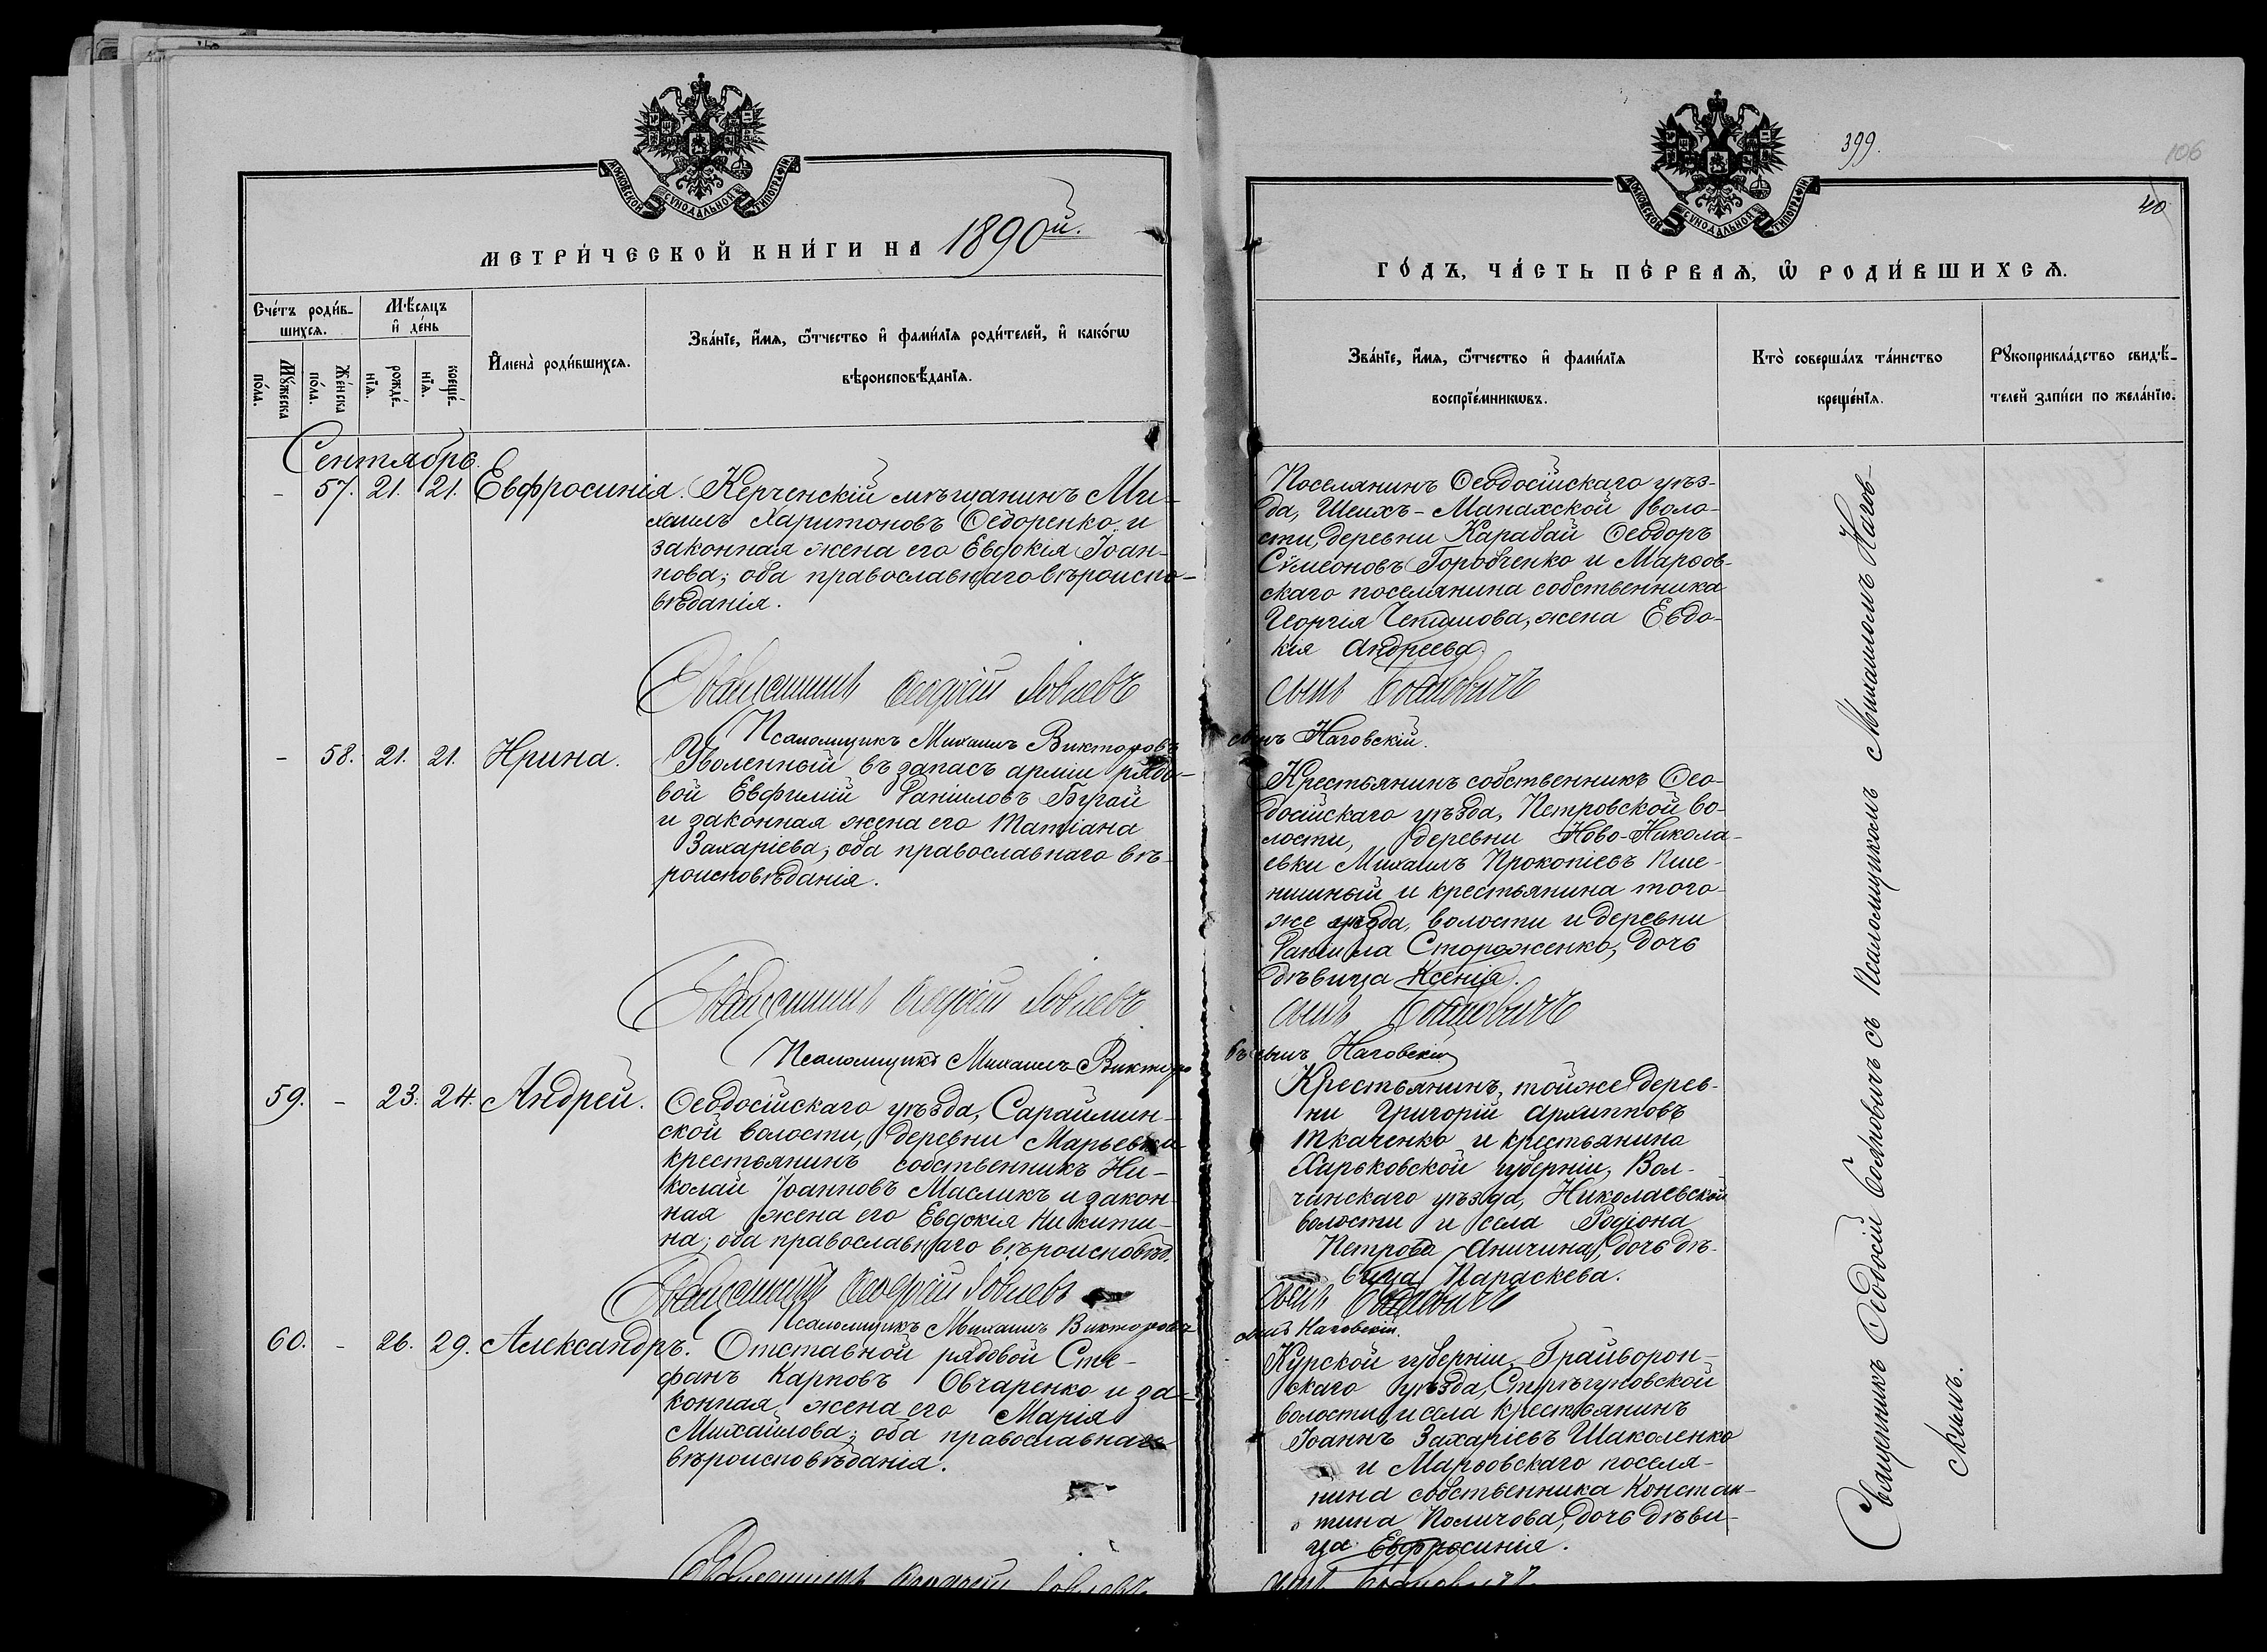 МОСКОВСКОЙ СѴНОДАЛЬНОЙ ТИПОГРАФІИ
МЕТРИ́ЧЕСКОЙ КНИ́ГИ НА 1890й.
Сче́тъ роди́в-
шихсѧ.
Мѣ́сѧцъ
и҆ де́нь
Мꙋ́жеска
по́ла.
Же́нска
по́ла.
рожде́-
нїѧ.
креще́-
нїѧ.
И҆мена̀ роди́вшихсѧ.
Зва́нїе, и҆́мѧ, ѻ҆́тчество и҆ фами́лїѧ роди́телей, и҆ како́гѡ
вѣроисповѣ́данїѧ.
Сентябрь.
- 57. 21. 21. Евфросинія. Керченскій мѣщанинъ Ми-
хаилъ Харитоновъ Ѳедоренко и
законная жена его Евдокія Іоан-
нова; оба православнаго вѣроиспо-
вѣданія.
Священникъ Ѳеодосій Іовлевъ
Псаломщикъ Михаилъ Викторовъ
- 58. 21. 21. Ирина. Уволенный въ запасъ арміи рядо-
вой Евфимій Даніиловъ Бугай
и законная жена его Татіана
Захаріева; оба православнаго вѣ-
роисповѣданія.
Священникъ Ѳеодосій Іовлевъ
Псаломщикъ Михаилъ Викторо
59. - 23. 24. Андрей. Ѳеодосійскаго уѣзда, Сараймин-
ской волости, деревни Марьевки
крестьянинъ собственникъ Ни-
колай Іоанновъ Масликъ и закон-
ная жена его Евдокія Никити-
на; оба православнаго вѣроисповѣд.
Священникъ Ѳеодосій Іовлевъ
Псаломщикъ Михаилъ Викторовъ
60. - 26. 29. Александръ. Отставной рядовой Сте-
фанъ Карповъ Овчаренко и за-
конная жена его Марія
Михайлова; оба православнаго
вѣроисповѣданія.
Священникъ Ѳеодосій Іовлевъ
399.
106
40
МОСКОВСКОЙ СѴНОДАЛЬНОЙ ТИПОГРАФІИ
ГО́ДЪ, ЧА́СТЬ ПЕ́РВАѦ, Ѡ҆ РОДИ́ВШИХСѦ.
Зва́нїе, и҆́мѧ, ѻ҆́тчество и҆ фами́лїѧ
воспрїе́мникѡвъ.
Кто̀ соверша́лъ та́инство
креще́нїѧ.
Рꙋкоприкла́дство свидѣ́-
телей за́писи по жела́нїю.
Поселянинъ Ѳеодосійскаго уѣз-
да, Шеихъ-Манахской воло-
сти, деревни Карабай Ѳеодоръ
Сѵмеоновъ Горобченко и Марѳов-
скаго поселянина собственника
Георгія жена Евдо-
кія Андреева.
сынъ
сынъ Наговскій.
Крестьянинъ собственникъ Ѳео-
досійскаго уѣзда, Петровской во-
лости, деревни Ново-Никола-
евки Михаилъ Прокопіевъ Пше-
ничный и крестьянина того-
же уѣзда, волости и деревни
Даніила Стороженко, дочь
дѣвица Ксенія.
сынъ
въ сынъ Наговскій
Крестьянинъ, тойже дерев-
ни Григорій Архипповъ
Ткаченко и крестьянина
Харьковской губерніи, Вол-
чанскаго уѣзда, Николаевской
волости и села Родіона
Петрова Аничина, дочь дѣ-
вица Параскева.
сынъ
сынъ Наговскій.
Курской губерніи, Грайворон-
скаго уѣзда, Стригуновской
волости и села крестьянинъ
Іоаннъ Захаріевъ Шаколенко
и Марѳовскаго поселя-
нина собственника Констан-
тина Поличова, дочь дѣви-
ца Евфросинія.
сынъ
Священникъ Ѳеодосій съ Псаломщикомъ Михаиломъ Нагов-
скимъ.